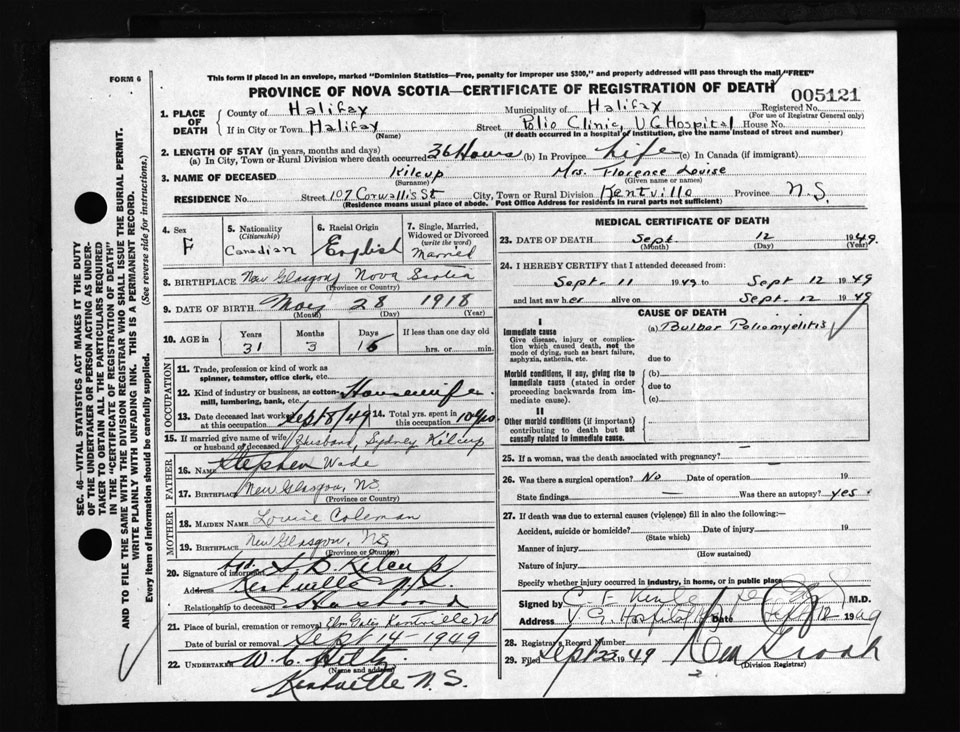 FORM 6
This form if placed in an envelope, marked "Dominion Statistics—Free, penalty for improper use $300," and properly addressed will pass through the mail "FREE"
PROVINCE OF NOVA SCOTIA—CERTIFICATE OF REGISTRATION OF DEATH
005121
1. PLACE OF DEATH
County of Halifax Municipality of Halifax Registered No.
(For use of Registrar General only)
If in City or Town Halifax Street Polio Clinic, V G Hospital House No.
(Name) (If death occurred in a hospital of institution, give the name instead of street and number)
2. LENGTH OF STAY (in years, months and days)
(a) In City, Town or Rural Division where death occurred 36 Hours (b) In Province Life (c) In Canada (if immigrant)
3. NAME OF DECEASED Kilcup Mrs. Florence Louise
(Surname) (Given name or names)
RESIDENCE No. Street 107 Corwallis St City, Town or Rural Division Kentville Province N.S.
(Residence means usual place of abode. Post Office Address for residents in rural parts not sufficient)
4. Sex F
5. Nationality (Citizenship) Canadian
6. Racial Origin English
7. Single, Married, Widowed or Divorced (write the word) Married
8. BIRTHPLACE New Glasgow Nova Scotia
(Province or Country)
9. DATE OF BIRTH May 28 1918
(Month) (Day) (Year)
10. AGE in Years Months Days If less than one day old
31 3 15 hrs. or min.
OCCUPATION
11. Trade, profession or kind of work as spinner, teamster, office clerk, etc.
12. Kind of industry or business, as cotton mill, lumbering, bank, etc. Housewife
13. Date deceased last worked at this occupation Sept 8/49 14. Total yrs. spent in this occupation 10 yrs.
15. If married give name of wife or husband of deceased Husband, Sydney Kilcup
FATHER
16. Name Stephen Wade
17. Birthplace New Glasgow, NS
(Province or Country)
MOTHER
18. MAIDEN NAME Louise Coleman
19. BIRTHPLACE New Glasgow, NS
(Province or Country)
20. Signature of informant S. D. Kilcup
Address Kentville N.S.
Relationship to deceased Husband
21. Place of burial, cremation or removal Elm Gates Kentville NS
Date of burial or removal Sept 14 - 1949
22. UNDERTAKER W. C. Hiltz
(Name and address)
Kentville N.S.
MEDICAL CERTIFICATE OF DEATH
23. DATE OF DEATH Sept. 12 1949
(Month) (Day) (Year)
24. I HEREBY CERTIFY that I attended deceased from:
Sept. 11 1949 to Sept 12 1949
and last saw her alive on Sept. 12 1949
CAUSE OF DEATH
I
Immediate cause
(a) Bulbar Poliomyelitis
Give disease, injury or complication which caused death, not the mode of dying, such as heart failure, asphyxia, asthenia, etc.
due to
Morbid conditions, if any, giving rise to immediate cause (stated in order proceeding backwards from immediate cause).
(b)
due to
(c)
II
Other morbid conditions (if important) contributing to death but not causally related to immediate cause.
25. If a woman, was the death associated with pregnancy?
26. Was there a surgical operation? No Date of operation 19
State findings Was there an autopsy? yes
27. If death was due to external causes (violence) fill in also the following:—
Accident, suicide or homicide? Date of injury 19
(State which)
Manner of injury
(How sustained)
Nature of injury
Specify whether injury occurred in industry, in home, or in public place
Signed by M.D.
Address V. G. Hospital Date Sept 12 1949
28. Registrar's Record Number
29. Filed Sept 23 1949
(Division Registrar)
SEC. 46—VITAL STATISTICS ACT MAKES IT THE DUTY OF THE UNDERTAKER OR PERSON ACTING AS UNDERTAKER TO OBTAIN ALL THE PARTICULARS REQUIRED IN THE "CERTIFICATE OF REGISTRATION OF DEATH" AND TO FILE THE SAME WITH THE DIVISION REGISTRAR WHO SHALL ISSUE THE BURIAL PERMIT.
WRITE PLAINLY WITH UNFADING INK. THIS IS A PERMANENT RECORD.
Every item of information should be carefully supplied. (See reverse side for instructions.)